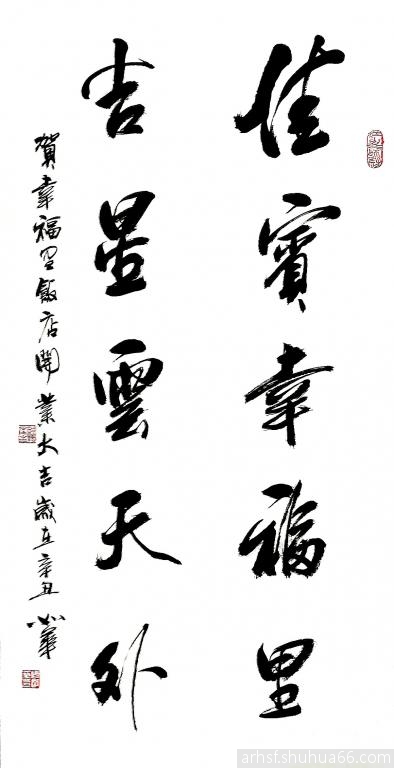 佳賓幸福里
吉星雲天外
賀幸福里飯店開業大吉歲在辛丑小華
arhsf.shuhua66.com